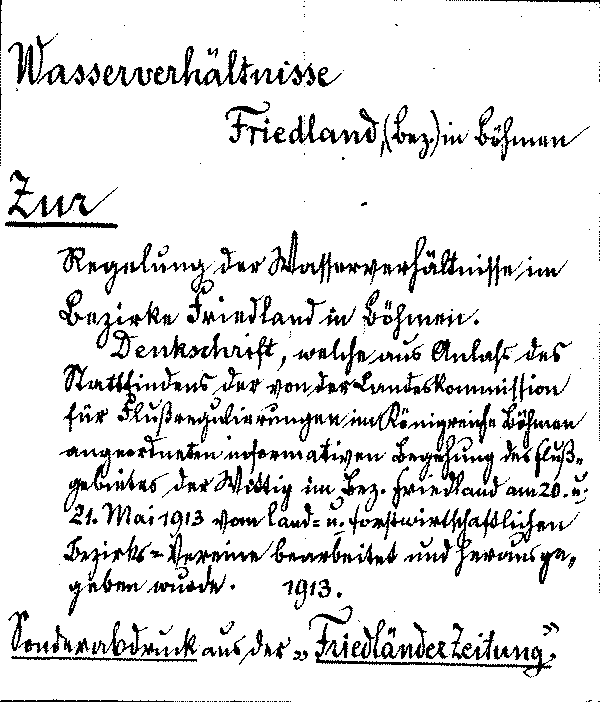 Wasserverhältnisse
Friedland, (Bez.) in Böhmen
Zur
Regelung der Wasserverhältnisse im
Bezirke Friedland in Böhmen.
Denkschrift, welche aus Anlaß des
Stattfindens der von der Landeskommission
für Flußregulierungen im Königreiche Böhmen
angeordneten informativen Begehung des Fluß-
gebietes der Wittig im Bez. Friedland am 20. u.
21. Mai 1913 vom land- u. forstwirtschaftlichen
Bezirks-Vereine bearbeitet und herausge-
geben wurde. 1913.
Sonderabdruck aus der „Friedländer Zeitung".